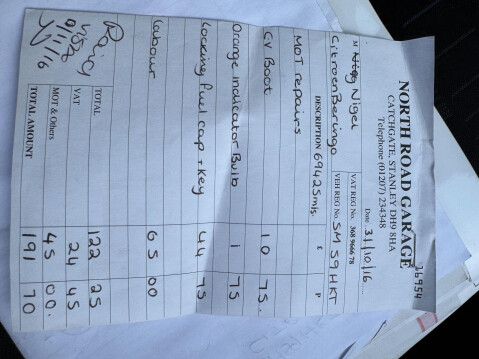 16954
NORTH ROAD GARAGE
CATCHGATE, STANLEY DH9 8HA
Telephone (01207) 234348
Date 31/10/16
M Nigel VAT REG No. 368 9666 78
Citroen Beringo VEH REG No. SM59HKT
DESCRIPTION 69425mls. £ P
MOT repairs
CV Boot 10 75.
Orange Indicator Bulb 1 75
Locking fuel cap + key 44 75
Labour 65 00
TOTAL 122 25
VAT 24 45
MOT & Others 45 00.
TOTAL AMOUNT 191 70
Paid by
VISA